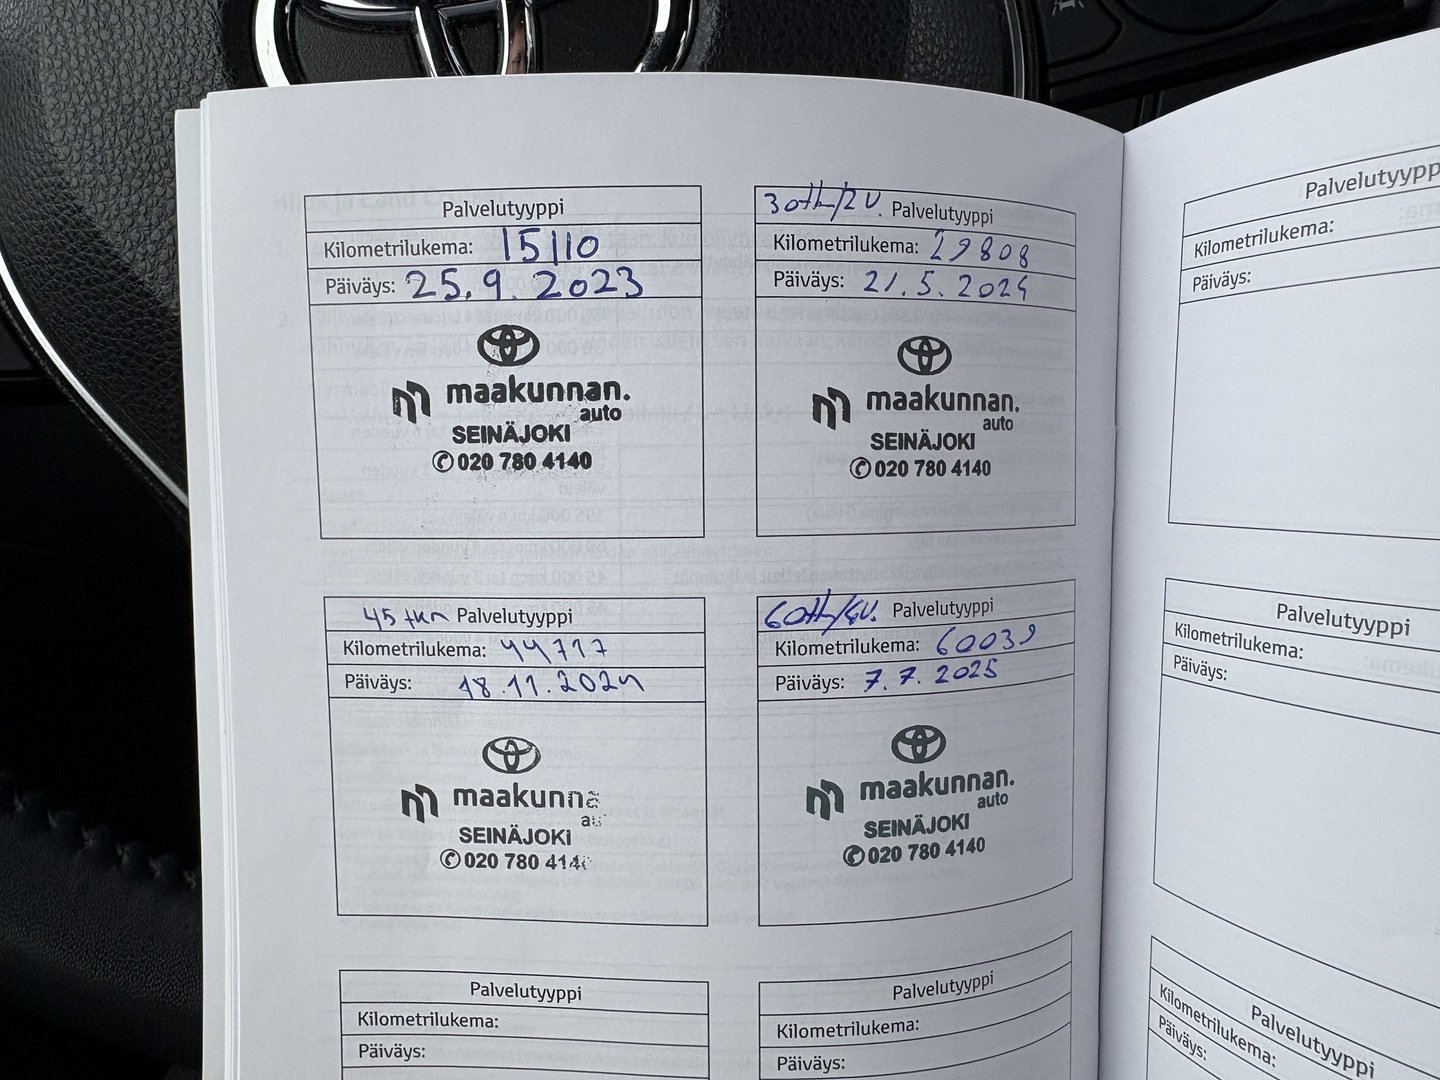 Palvelutyyppi
Kilometrilukema: 15110
Päiväys: 25.9.2023
maakunnan.
auto
SEINÄJOKI
020 780 4140
30tkm/2V. Palvelutyyppi
Kilometrilukema: 29808
Päiväys: 21.5.2024
maakunnan.
auto
SEINÄJOKI
020 780 4140
45 tkm Palvelutyyppi
Kilometrilukema: 44717
Päiväys: 18.11.2024
maakunna
au
SEINÄJOKI
020 780 4140
60tkm/4V. Palvelutyyppi
Kilometrilukema: 60039
Päiväys: 7.7.2025
maakunnan.
auto
SEINÄJOKI
020 780 4140
Palvelutyyppi
Kilometrilukema:
Päiväys:
Palvelutyyppi
Kilometrilukema:
Päiväys:
Palvelutyypp
Kilometrilukema:
Päiväys:
Palvelutyyppi
Kilometrilukema:
Päiväys:
Palvelutyyppi
Kilometrilukema:
Päiväys: